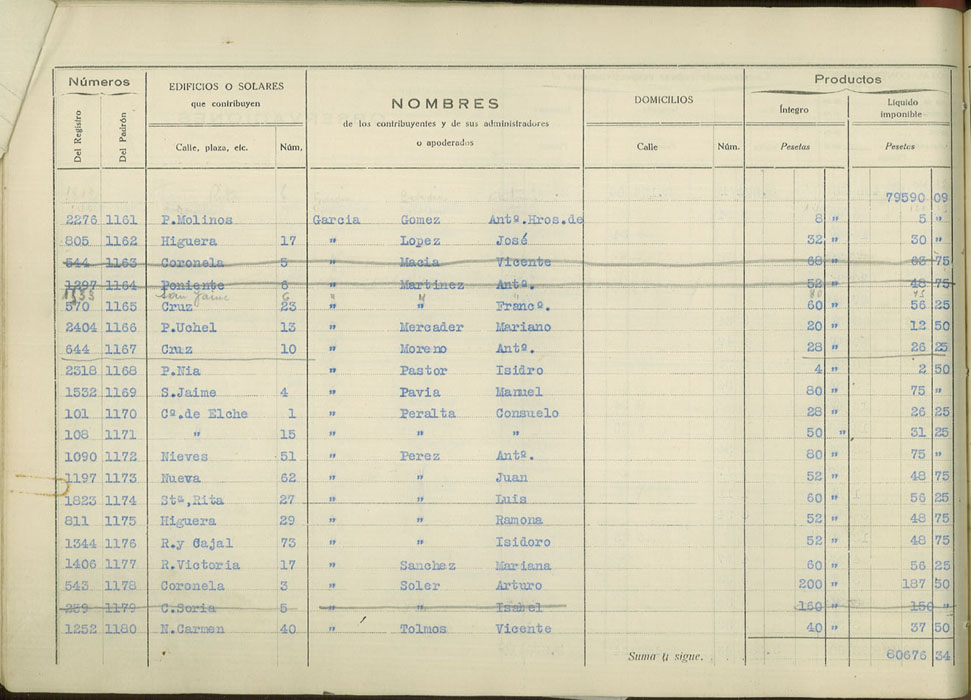 Números EDIFICIOS O SOLARES que contribuyen NOMBRES de los contribuyentes y de sus administradores o apoderados DOMICILIOS Productos
Del Registro Del Padrón Calle, plaza, etc. Núm. Calle Núm. Íntegro Pesetas Líquido imponible Pesetas
79590 09
2276 1161 P.Molinos Garcia Gomez Antº.Hros.de 8 " 5 "
805 1162 Higuera 17 " Lopez José 32 " 30 "
544 1163 Coronela 5 " Macia Vicente 68 " 63 75
1297 1164 Poniente 6 " Martinez Antº. 52 " 48 75
1533 San Jaime 6 " " " 80 75
570 1165 Cruz 23 " " Francº. 60 " 56 25
2404 1166 P.Uchel 13 " Mercader Mariano 20 " 12 50
644 1167 Cruz 10 " Moreno Antº. 28 " 26 25
2318 1168 P.Nia " Pastor Isidro 4 " 2 50
1532 1169 S.Jaime 4 " Pavia Manuel 80 " 75 "
101 1170 Cº.de Elche 1 " Peralta Consuelo 28 " 26 25
108 1171 " 15 " " " 50 " 31 25
1090 1172 Nieves 51 " Perez Antº. 80 " 75 "
1197 1173 Nueva 62 " " Juan 52 " 48 75
1823 1174 Stª,Rita 27 " " Luis 60 " 56 25
811 1175 Higuera 29 " " Ramona 52 " 48 75
1344 1176 R.y Cajal 73 " " Isidoro 52 " 48 75
1406 1177 R.Victoria 17 " Sanchez Mariana 60 " 56 25
543 1178 Coronela 3 " Soler Arturo 200 " 187 50
259 1179 C.Soria 5 " " Isabel 160 " 150 "
1252 1180 N.Carmen 40 " Tolmos Vicente 40 " 37 50
Suma y sigue. . . 80676 34